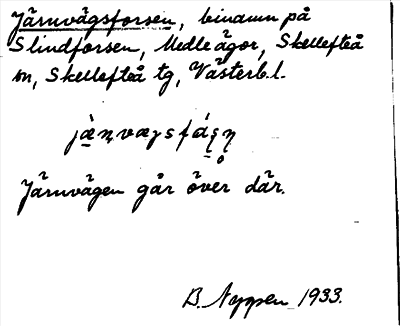 Järnvägsforsen, binamn på
Slindforsen, Medle ägor, Skellefteå
sn, Skellefteå tg, Västerb. l.
Järnvägen går över där.
B. Nyppen 1933.